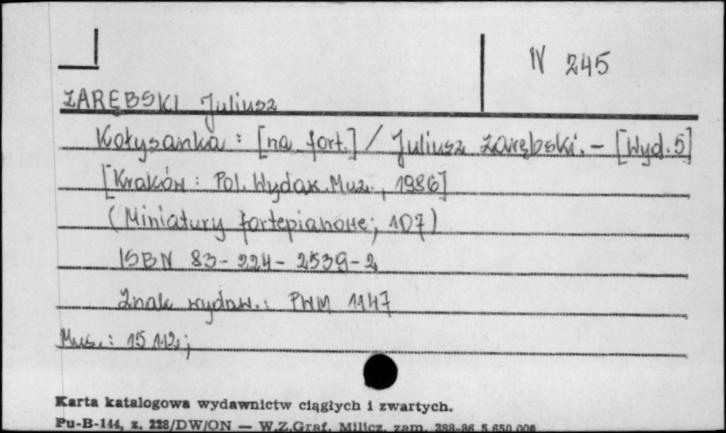 N 245
ZARĘBSKI Juliusz
Kołysanka : [na fort.] / Juliusz Zarębski. – [Wyd. 5]
[Kraków : Pol. Wydaw. Muz., 1986]
(Miniatury fortepianowe; 107)
ISBN 83-224-2539-2
Znak wydaw.: PWM 1147
Mus.: 15 112;
Karta katalogowa wydawnictw ciągłych i zwartych.
Pu-B-144, z. 228/DW/ON — W.Z.Graf. Milicz, zam. 388-86 5.650.000